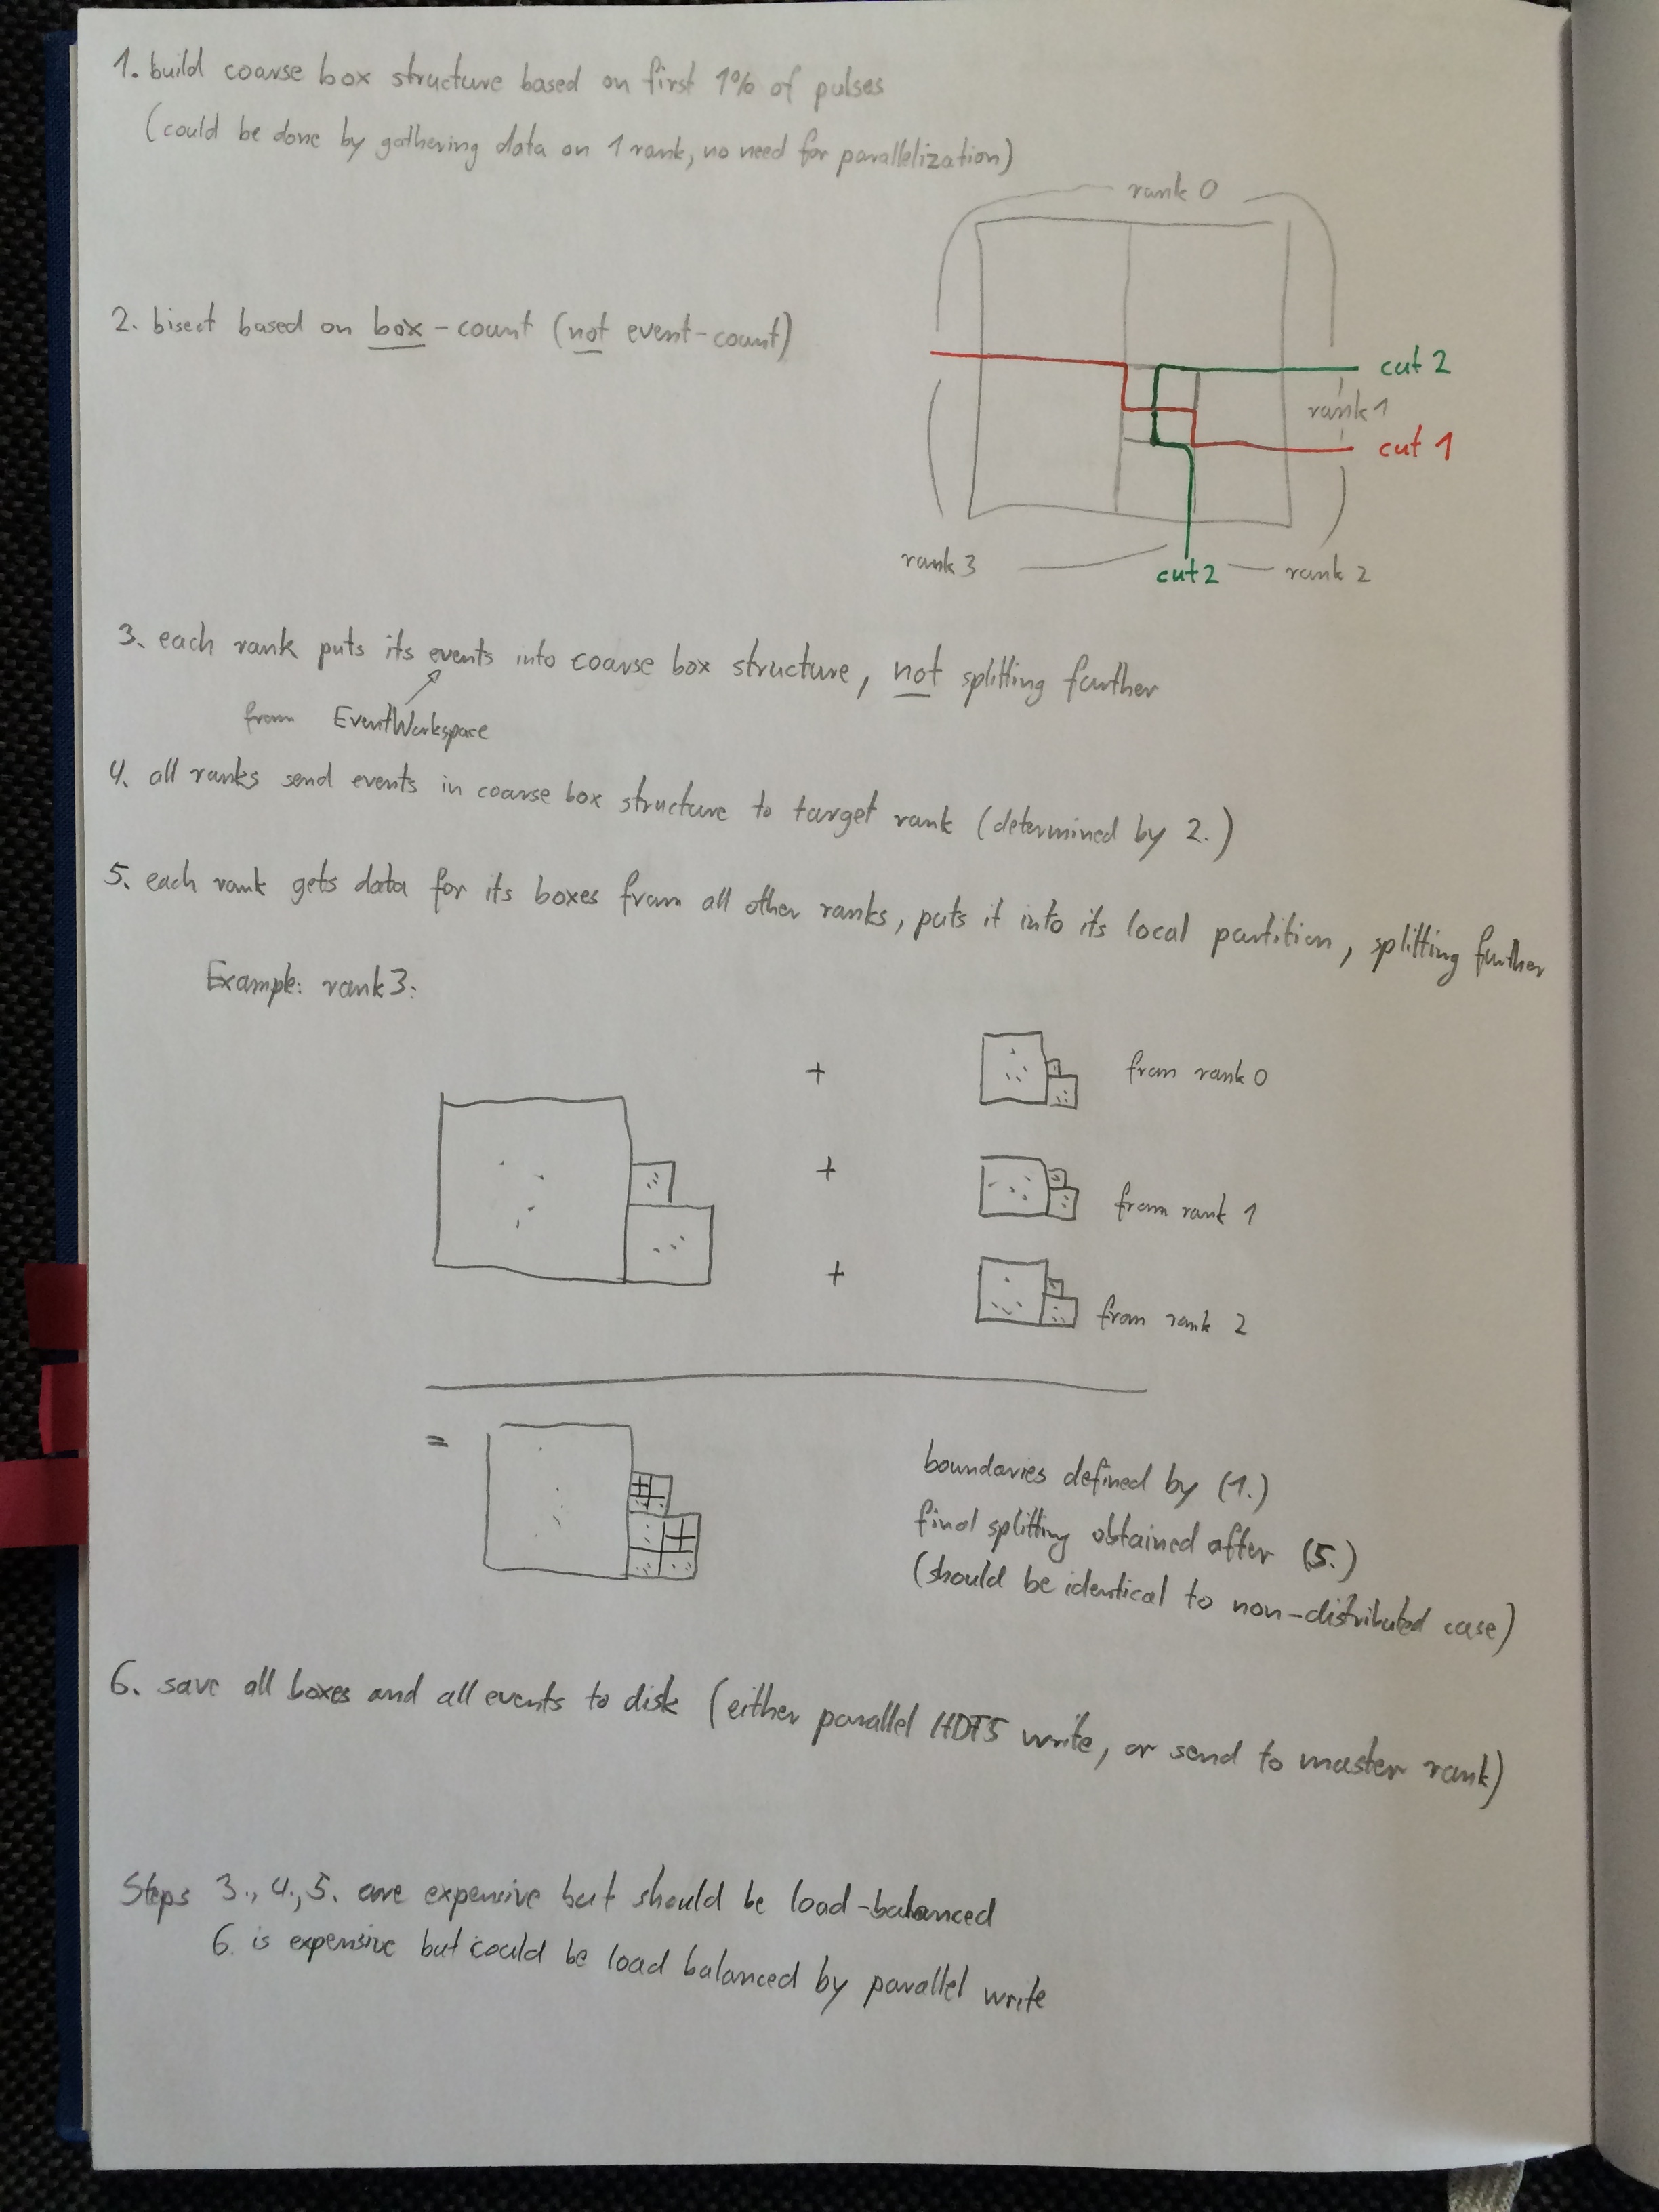 1. build coarse box structure based on first 1% of pulses
(could be done by gathering data on 1 rank, no need for parallelization)
rank 0
2. bisect based on box-count (not event-count)
cut 2
rank 1
cut 1
rank 3
cut 2
rank 2
3. each rank puts its events into coarse box structure, not splitting further
from EventWorkspace
4. all ranks send events in coarse box structure to target rank (determined by 2.)
5. each rank gets data for its boxes from all other ranks, puts it into its local partition, splitting further
Example: rank 3:
+
from rank 0
+
from rank 1
+
from rank 2
=
boundaries defined by (1.)
final splitting obtained after (5.)
(should be identical to non-distributed case)
6. save all boxes and all events to disk (either parallel HDF5 write, or send to master rank)
Steps 3., 4., 5. are expensive but should be load-balanced
6. is expensive but could be load balanced by parallel write